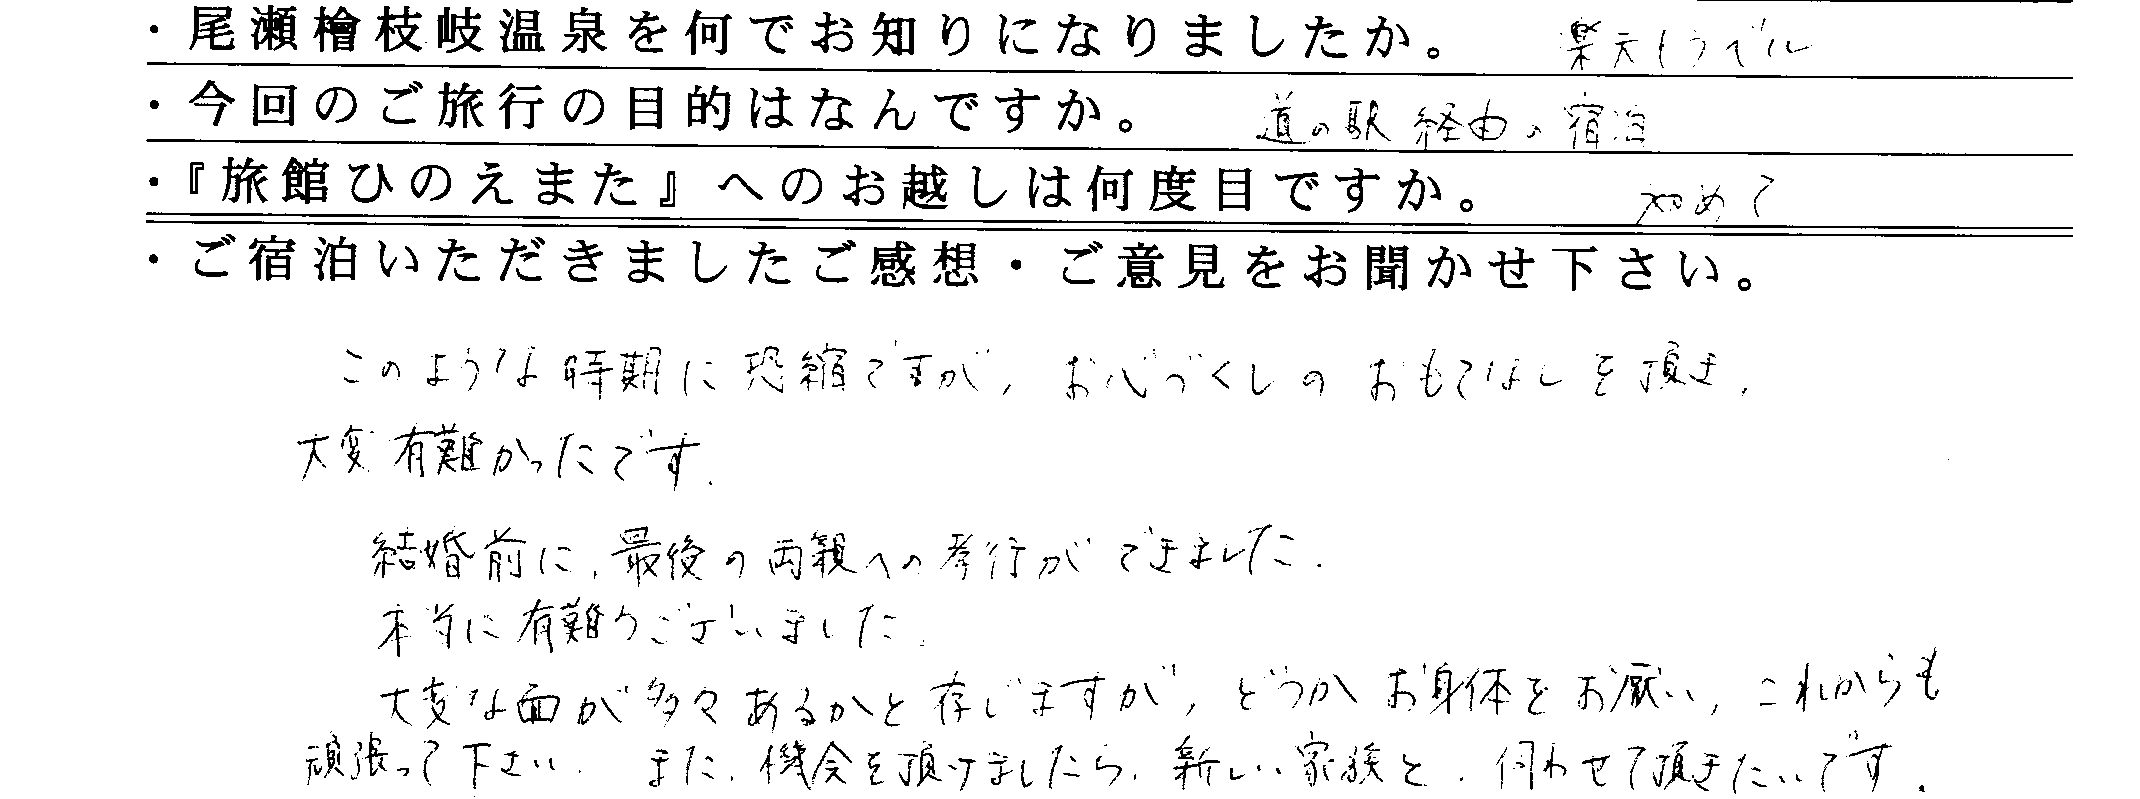 ・尾瀬檜枝岐温泉を何でお知りになりましたか。 楽天トラベル
・今回のご旅行の目的はなんですか。 道の駅経由の宿泊
・『旅館ひのえまた』へのお越しは何度目ですか。 初めて
・ご宿泊いただきましたご感想・ご意見をお聞かせ下さい。
このような時期に恐縮ですが、お心づくしのおもてなしを頂き、
大変有難かったです。
結婚前に、最後の両親への孝行ができました。
本当に有難うございました。
大変な面が多々あるかと存じますが、どうかお身体をお厭い、これからも
頑張って下さい。また、機会を頂けましたら、新しい家族と、伺わせて頂きたいです。